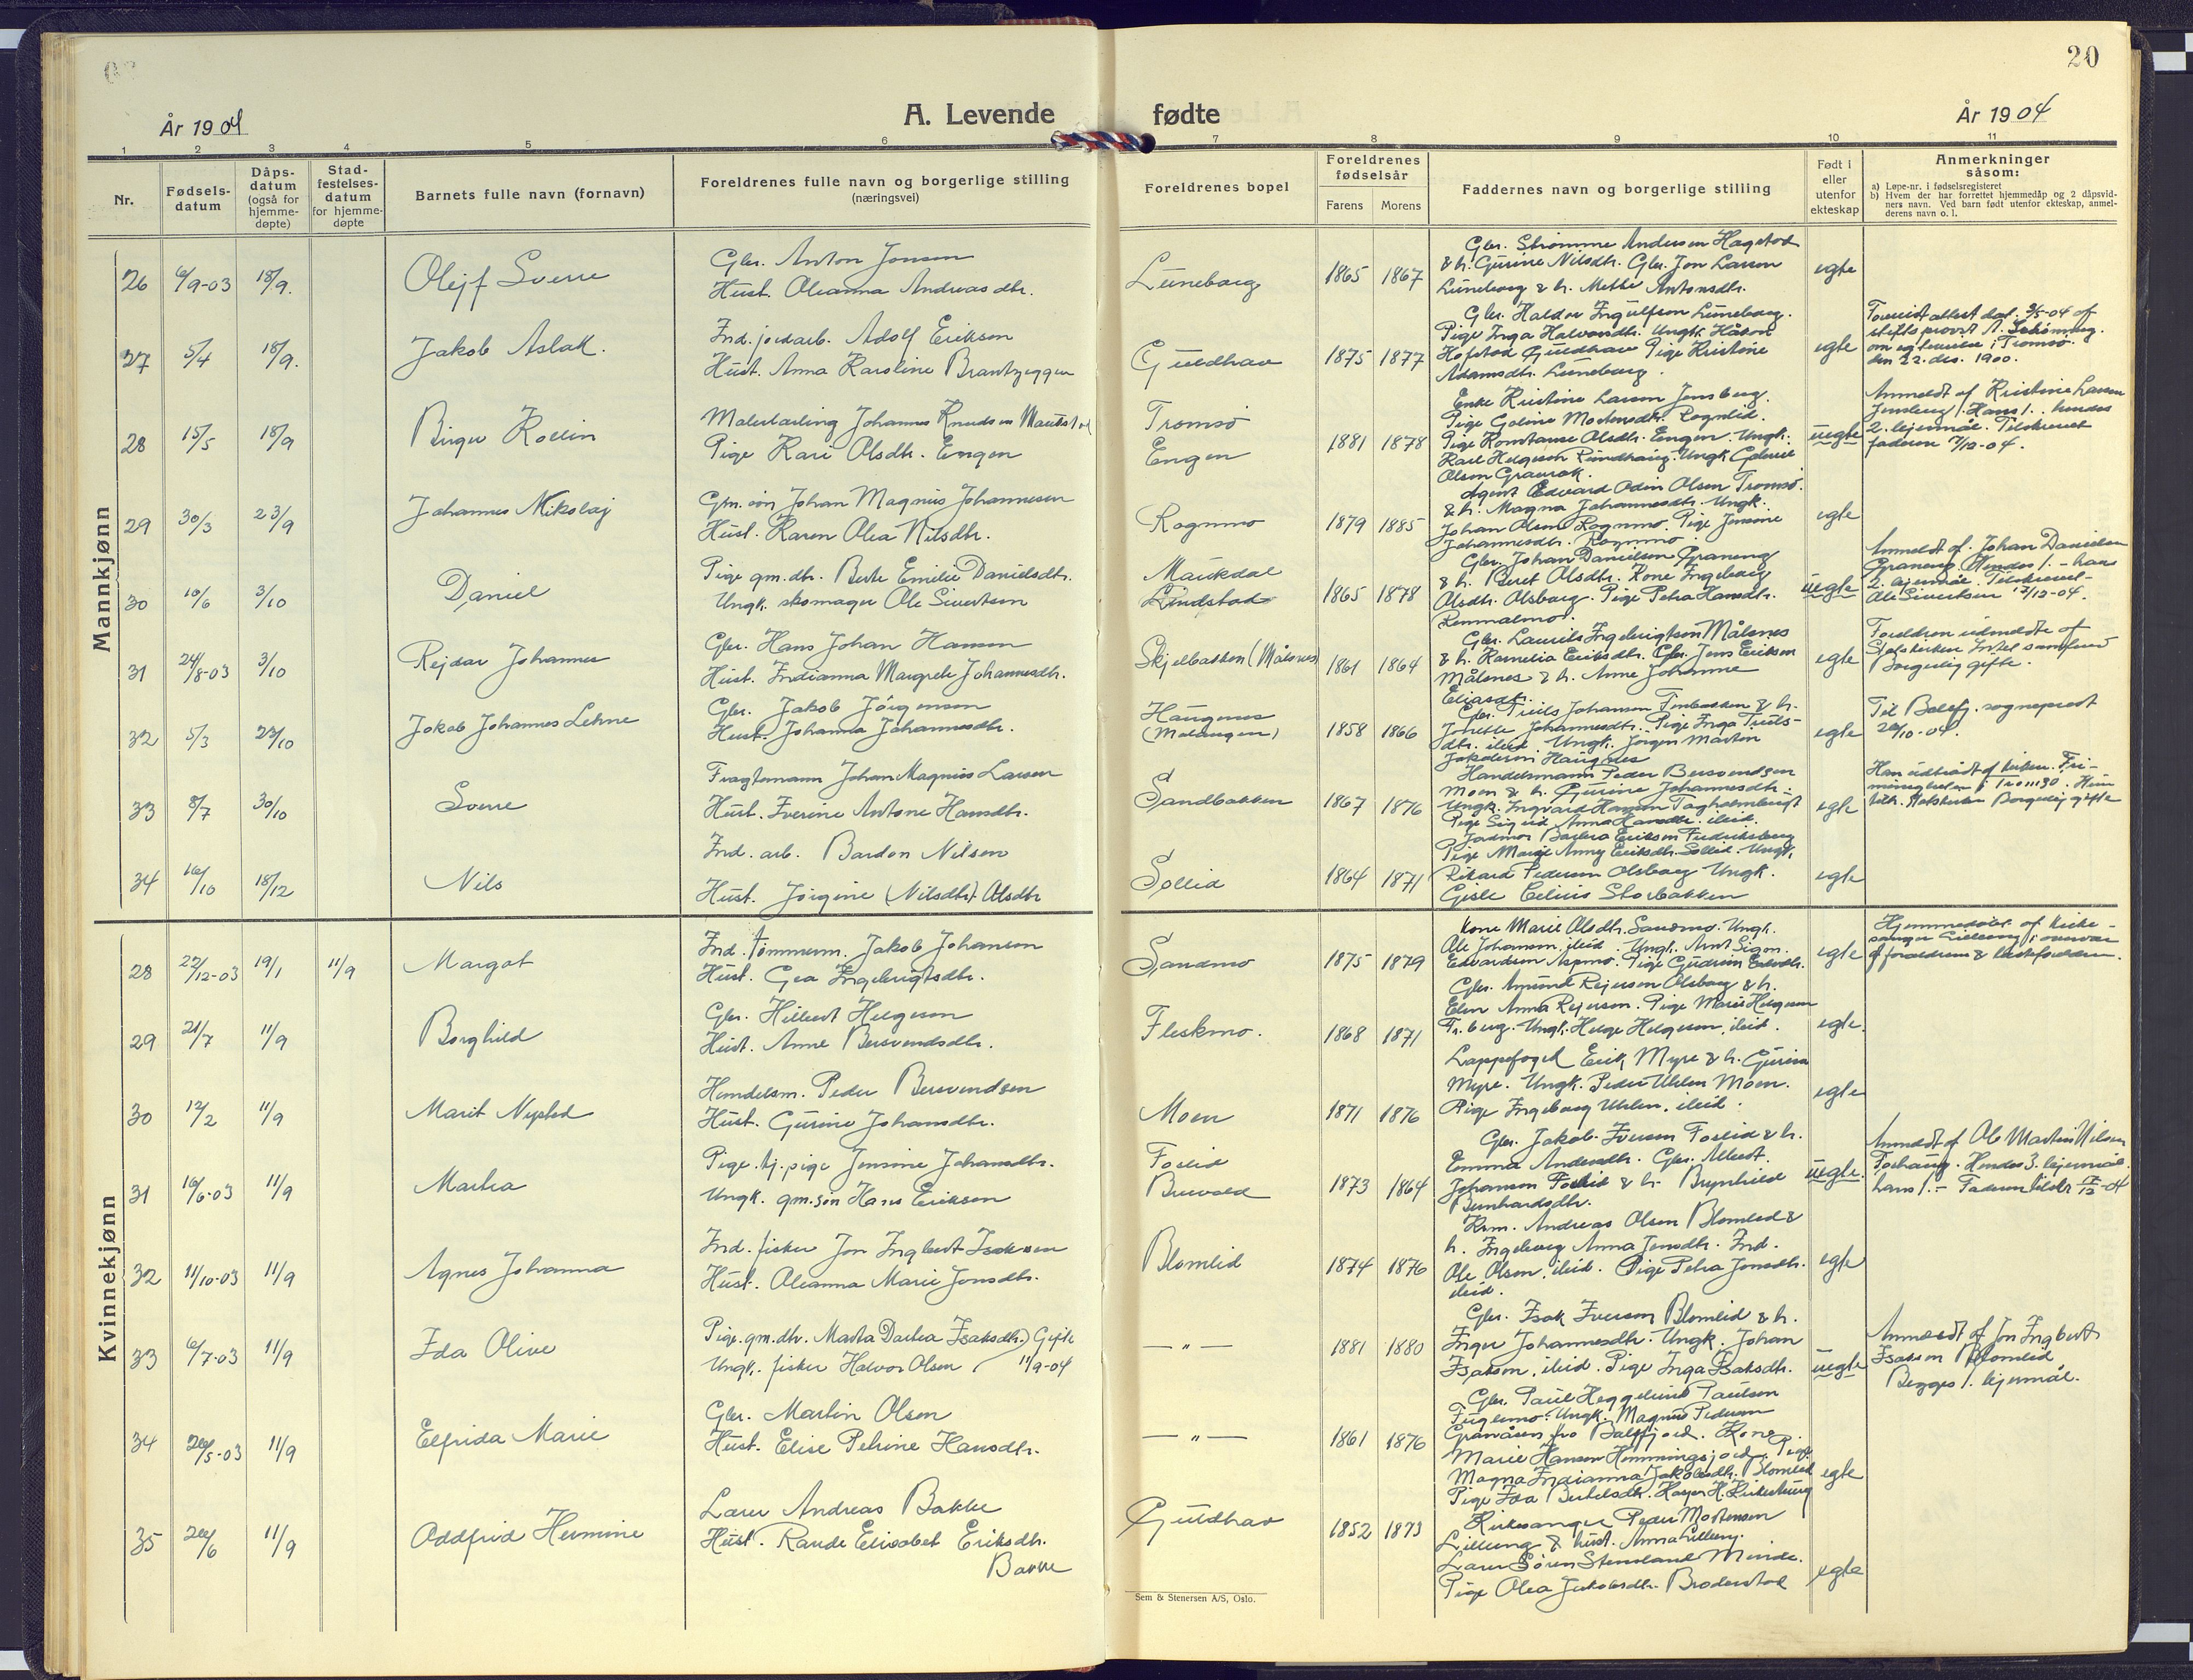 20
År 1904
A. Levende fødte
År 1904
1 2 3 4 5 6 7 8 9 10 11
Nr.
Fødsels-
datum
Dåps-
datum
(også for
hjemme-
døpte)
Stad-
festelses-
datum
for hjemme-
døpte
Barnets fulle navn (fornavn)
Foreldrenes fulle navn og borgerlige stilling
(næringsvei)
Foreldrenes bopel
Foreldrenes
fødselsår
Farens Morens
Faddernes navn og borgerlige stilling
Født i
eller
utenfor
ekteskap
Anmerkninger
såsom:
a) Løpe-nr. i fødselsregisteret
b) Hvem der har forrettet hjemmedåp og 2 dåpsvid-
ners navn. Ved barn født utenfor ekteskap, anmel-
derens navn o. l.
Mannkjønn
26 6/9-03 18/9. Olejf Sverre
Gbr. Anton Jensen
Hust. Oleanna Andreasdtr.
Luneborg 1865 1867
Gbr. Strømme Andersen Hagstad
& h. Gurine Nilsdtr. Gbr. Jon Larsen
Luneborg & h. Methe Antonsdtr.
egte
27 5/4 18/9. Jakob Aslak.
Ind. jordarb. Adolf Erikson
Hust. Anna Karoline Brantzeggen
Guldhav 1875 1877
Gbr. Haldor Ingulfson Luneborg.
Pige Inga Halvorsdtr. Ungk. Håkon
Hofstad Guldhav Pige Kristine
Adamsdtr. Luneborg.
egte
stiftsprovst
om egtevielse i Tromsø
den 22. des. 1900.
28 15/5 18/9 Birger Kollin
Malerlærling Johannes Knudsen
Pige Kari Olsdtr. Engen
Tromsø
Engen
1881 1878
Enke Kristine Larsen Jensberg.
Pige Galine Mortensdtr. Rognlid.
Pige Konstanse Olsdtr. Engen. Ungk.
Karl Helgeson Rundhaug. Ungk. Gabriel
Olsen
uegte
Anmeldt af Kristine Larsen
Jensberg. Hans 1. hendes
2. lejermål. Tilskrevet
faderen 7/12-04.
29 30/3 23/9 Johannes Nikolaj
Gm. søn Johan Magnus Johannesen
Hust. Karen Olea Nilsdtr.
Rognmo 1879 1885
Agent Edvard Odin Olsen Tromsø.
& h. Magna Johannesdtr. Ungk.
Johan Olsen Rognmo. Pige Jensine
Johannesdtr. Rognmo
egte
30 10/6 3/10 Daniel
Pige gm. dtr. Berte Emilie Danielsdtr.
Ungk. skomager Ole Sivertsen
Maukdal
Lindstad
1865 1878
Gbr. Johan Danielsen Graneng
& h. Beret Olsdtr. Kone Ingeborg
Olsdtr. Olsborg. Pige Petra Hansdtr.
uegte
Anmeldt af. Johan Danielsen
Graneng. Hendes 1. - hans
2. lejermål. Tilskrevet
Ole Sivertsen 17/12-04.
31 24/8-03 3/10 Rejdar Johannes
Gbr. Hans Johan Hansen
Hust. Indianna Margrete Johannesdtr.
Skjelbakken (Målsnes) 1861 1864
Gbr. Laurits Ingebrigtsen Målsnes
& h. Kornelia Eriksdtr. Gbr. Jens Erikson
Målsnes & h. Anne Johanne
Eliasdtr.
egte
Foreldren udmeldte af
Statskirken
Borgerlig gifte.
32 5/3 23/10 Jakob Johannes Lehne
Gbr. Jakob Jörgensen
Hust. Johanna Johannesdtr.
Haugenes
(Malangen)
1858 1866
Gbr. Truls Johansen & h.
Johannesdtr. Pige Inga Truls-
dtr. ibid. Ungk. Jørgen Martin
Jakobsen Haugnes
egte
Til Balsfj. sogneprest
20/10-04.
33 8/7 30/10 Sverre
Fragtemann Johan Magnus Larsen
Hust. Iverine Antone Hansdtr.
Sandbakken 1867 1876
Handelsmann Peder Bersvendsen
Moen & h. Gurine Johannesdtr.
Ungk. Ingvard Hansen
Pige Sigrid Anna Hansdtr. ibid.
egte
Han udtraadt af kirken.
Borgerlig gifte
34 16/10 18/12 Nils
Ind. arb. Bardon Nilsen
Hust. Jørgine (Nilsdtr) Olsdtr
Sollid 1864 1871
Jordmor Barbra Erikson Fredriksberg
Pige Marie Anny Eriksdtr. Sollid. Ungk.
Rikard Pedersen Olsborg Ungk.
Gisle Celius Storbakken
egte
Kvinnekjønn
28 22/12-03 19/1 11/9 Margot
Ind. tømmerm. Jakob Johansen
Hust. Gea Ingebrigtsdtr.
Sandmo 1875 1879
Kone Marie Olsdtr. Sandmo. Ungk.
Ole Johansen, ibid. Ungk. Arnt Sigon.
Edvardsen Aspmo. Pige Gudrun Edvdtr.
egte
Hjemmedøbt af kirke-
sanger Lilleeng i overvær
af forældrene & besteforældrene.
29 21/7 11/9 Borghild
Gbr. Hilbert Helgeson
Hust. Anne Bersvendsdtr.
Fleskmo. 1868 1871
Gbr. Amund Rejerson Olsborg & h.
Elen Anna Rejerson. Pige Marie Helgesen
Fr.berg. Ungk. Helge Helgeson, ibid.
egte.
30 12/2 11/9 Marit Nysted
Handelsm. Peder Bersvendsen
Hust. Gurine Johansdtr.
Moen 1871 1876
Lappefoged Erik Myre & h. Gurina
Myre. Ungk. Peder Uhlen Moen.
Pige Ingeborg Uhlen, ibid.
egte
31 16/6-03 11/9 Martea
Pige. tj.pige Jensine Johansdtr.
Ungk. gm.søn Hans Erikson
Foslid
Buvold
1873 1864
Gbr. Jakob Iverson Foslid & h.
Emma Andersdtr. Gbr. Albert
Johanson Foslid & h. Brynhild
Bernhardsdtr.
uegte.
Anmeldt af Ole Martin Nilsen
Foshaug. Hendes 3. lejermål.
hans 1. - Faderen tilskr. 17/12-04
32 11/10-03 11/9 Agnes Johanna
Ind. fisker Jon Ingbert Isaksen
Hust. Oleanna Marie Jonsdtr.
Blomlid 1874 1876
Krm. Andreas Olsen Blomlid &
h. Ingeborg Anna Jonsdtr. Ind.
Ole Olsen, ibid. Pige Petra Jonsdtr.
ibid.
egte
33 6/7-03 11/9 Ida Olive
Pige. gm.dtr. Marta Dortea Isaksdtr.) Gifte
Ungk. fisker Halvor Olsen 11/9-04
— " — 1881 1880
Gbr. Isak Iverson Blomlid & h.
Inger Johannesdtr. Ungk. Johan
Isakson, ibid. Pige Inga Isaksdtr.
uegte
Anmeldt af Jon Ingbert
Isaksen Blomlid
Begges 1. lejermål.
34 26/5-03 11/9 Elfrida Marie
Gbr. Martin Olsen
Hust. Elise Petrine Hansdtr.
— " — 1861 1876
Gbr. Paul Heggelund Paulsen
Fuglemo. Ungk. Magnus Pedersen
Granåsen fra Balsfjord. Kone
Marie Hansen Hemmingsjord. Pige
Magna Indianna Jakobsdtr. Blomlid
Pige Ida Bertelsdtr.
egte
35 26/6 11/9 Oddfrid Hermine
Lærer Andreas Bakke
Hust. Rande Elisabet Eriksdtr.
Bakke
Guldhav 1852 1873
Kirkesanger Peder Mortensen
Lilleeng & hust. Anna Lilleeng.
Lærer Søren Stensland Minde.
Pige Olea Jakobsdtr. Broderstad
egte
Sem & Stenersen A/S, Oslo.